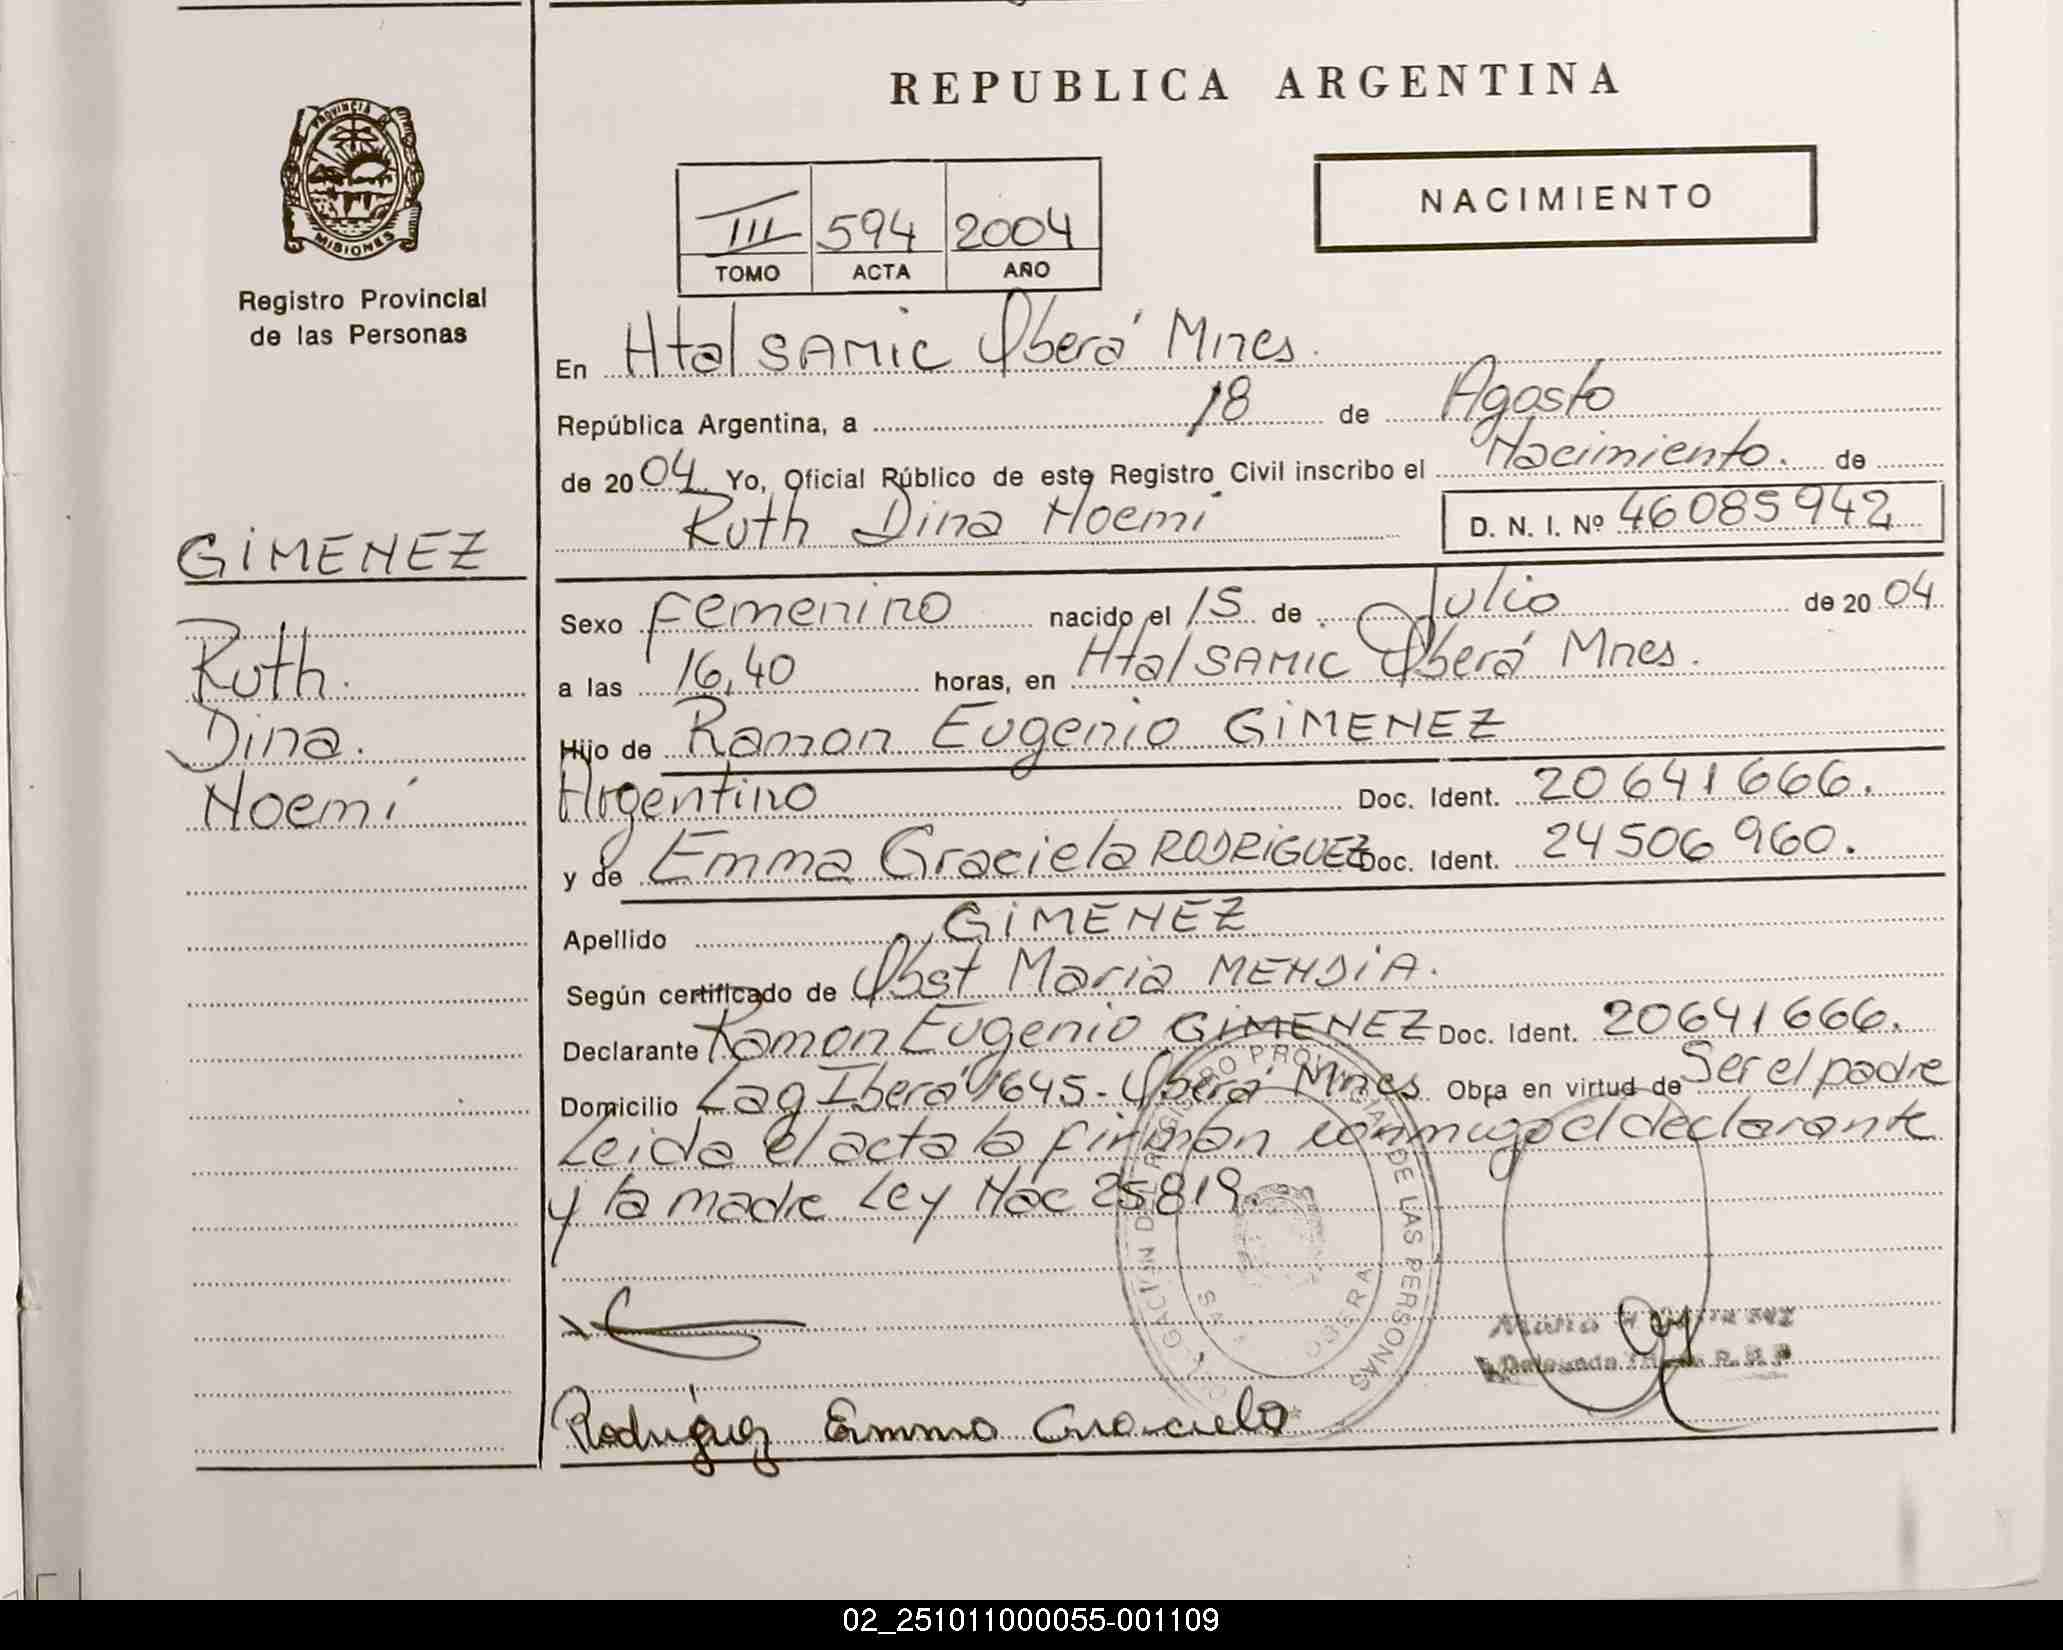 REPUBLICA ARGENTINA
PROVINCIA DE MISIONES
Registro Provincial
de las Personas
NACIMIENTO
III 594 2004
TOMO ACTA AÑO
En Htal SAMIC Oberá Mnes.
República Argentina, a 18 de Agosto
de 2004 Yo, Oficial Público de este Registro Civil inscribo el Nacimiento. de
Ruth Dina Noemí D. N. I. Nº 46085942
GIMENEZ
Ruth.
Dina.
Noemí
Sexo Femenino nacido el 15 de Julio de 2004
a las 16,40 horas, en Htal SAMIC Oberá Mnes.
Hijo de Ramon Eugenio GIMENEZ
Argentino Doc. Ident. 20641666.
y de Emma Graciela RODRIGUEZ Doc. Ident. 24506960.
Apellido GIMENEZ
Según certificado de Obst Maria MENDIA.
Declarante Ramon Eugenio GIMENEZ Doc. Ident. 20641666.
Domicilio Lag Iberá 1645- Oberá Mnes Obra en virtud de Ser el padre
Leida el acta la firman conmigo el declarante
y la madre Ley Nac 25819.
REGISTRO PROVINCIAL DE LAS PERSONAS
OBERA
Rodriguez Emma Graciela
02_251011000055-001109